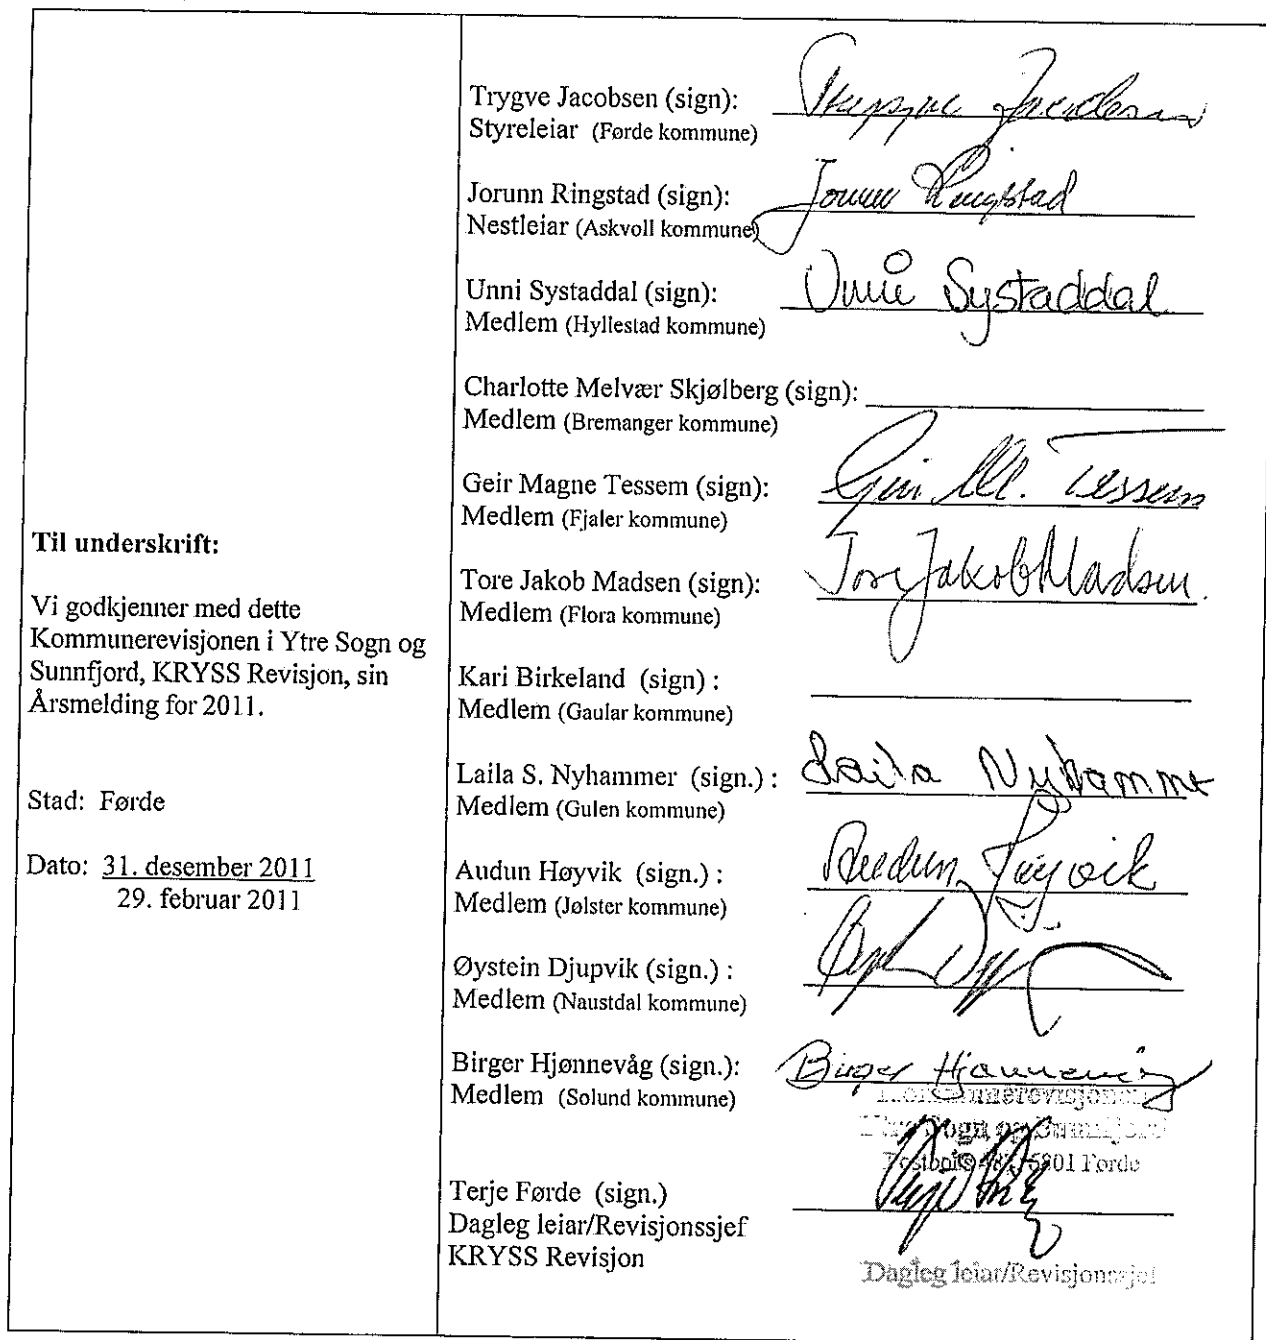 Til underskrift:
Vi godkjenner med dette
Kommunerevisjonen i Ytre Sogn og
Sunnfjord, KRYSS Revisjon, sin
Årsmelding for 2011.
Stad: Førde
Dato: 31. desember 2011
29. februar 2011
Trygve Jacobsen (sign): Trygve Jacobsen
Styreleiar (Førde kommune)
Jorunn Ringstad (sign): Jorunn Ringstad
Nestleiar (Askvoll kommune)
Unni Systaddal (sign): Unni Systaddal
Medlem (Hyllestad kommune)
Charlotte Melvær Skjølberg (sign):
Medlem (Bremanger kommune)
Geir Magne Tessem (sign): Geir M. Tessem
Medlem (Fjaler kommune)
Tore Jakob Madsen (sign): Tore Jakob Madsen.
Medlem (Flora kommune)
Kari Birkeland (sign) :
Medlem (Gaular kommune)
Laila S. Nyhammer (sign.) : Laila Nyhammer
Medlem (Gulen kommune)
Audun Høyvik (sign.) : Audun Høyvik
Medlem (Jølster kommune)
Øystein Djupvik (sign.) :
Medlem (Naustdal kommune)
Birger Hjønnevåg (sign.): Birger Hjønnevåg
Medlem (Solund kommune)
Kommunerevisjonen i
Ytre Sogn og Sunnfjord
6801 Førde
Terje Førde (sign.)
Dagleg leiar/Revisjonssjef
KRYSS Revisjon
Dagleg leiar/Revisjonssjef